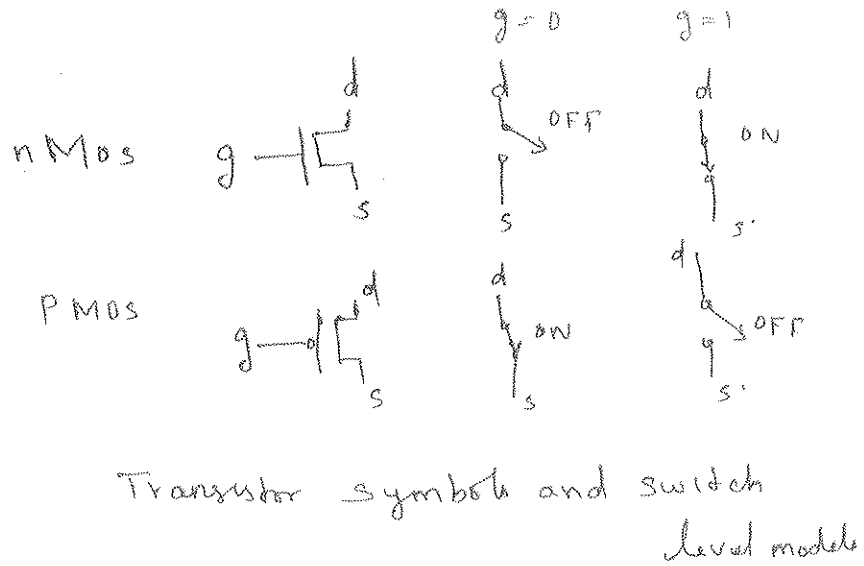 g = 0
g = 1
nMos
g
d
s
d
OFF
s
d
ON
s
PMos
g
d
s
d
ON
s
d
OFF
s
Transistor symbols and switch
level models